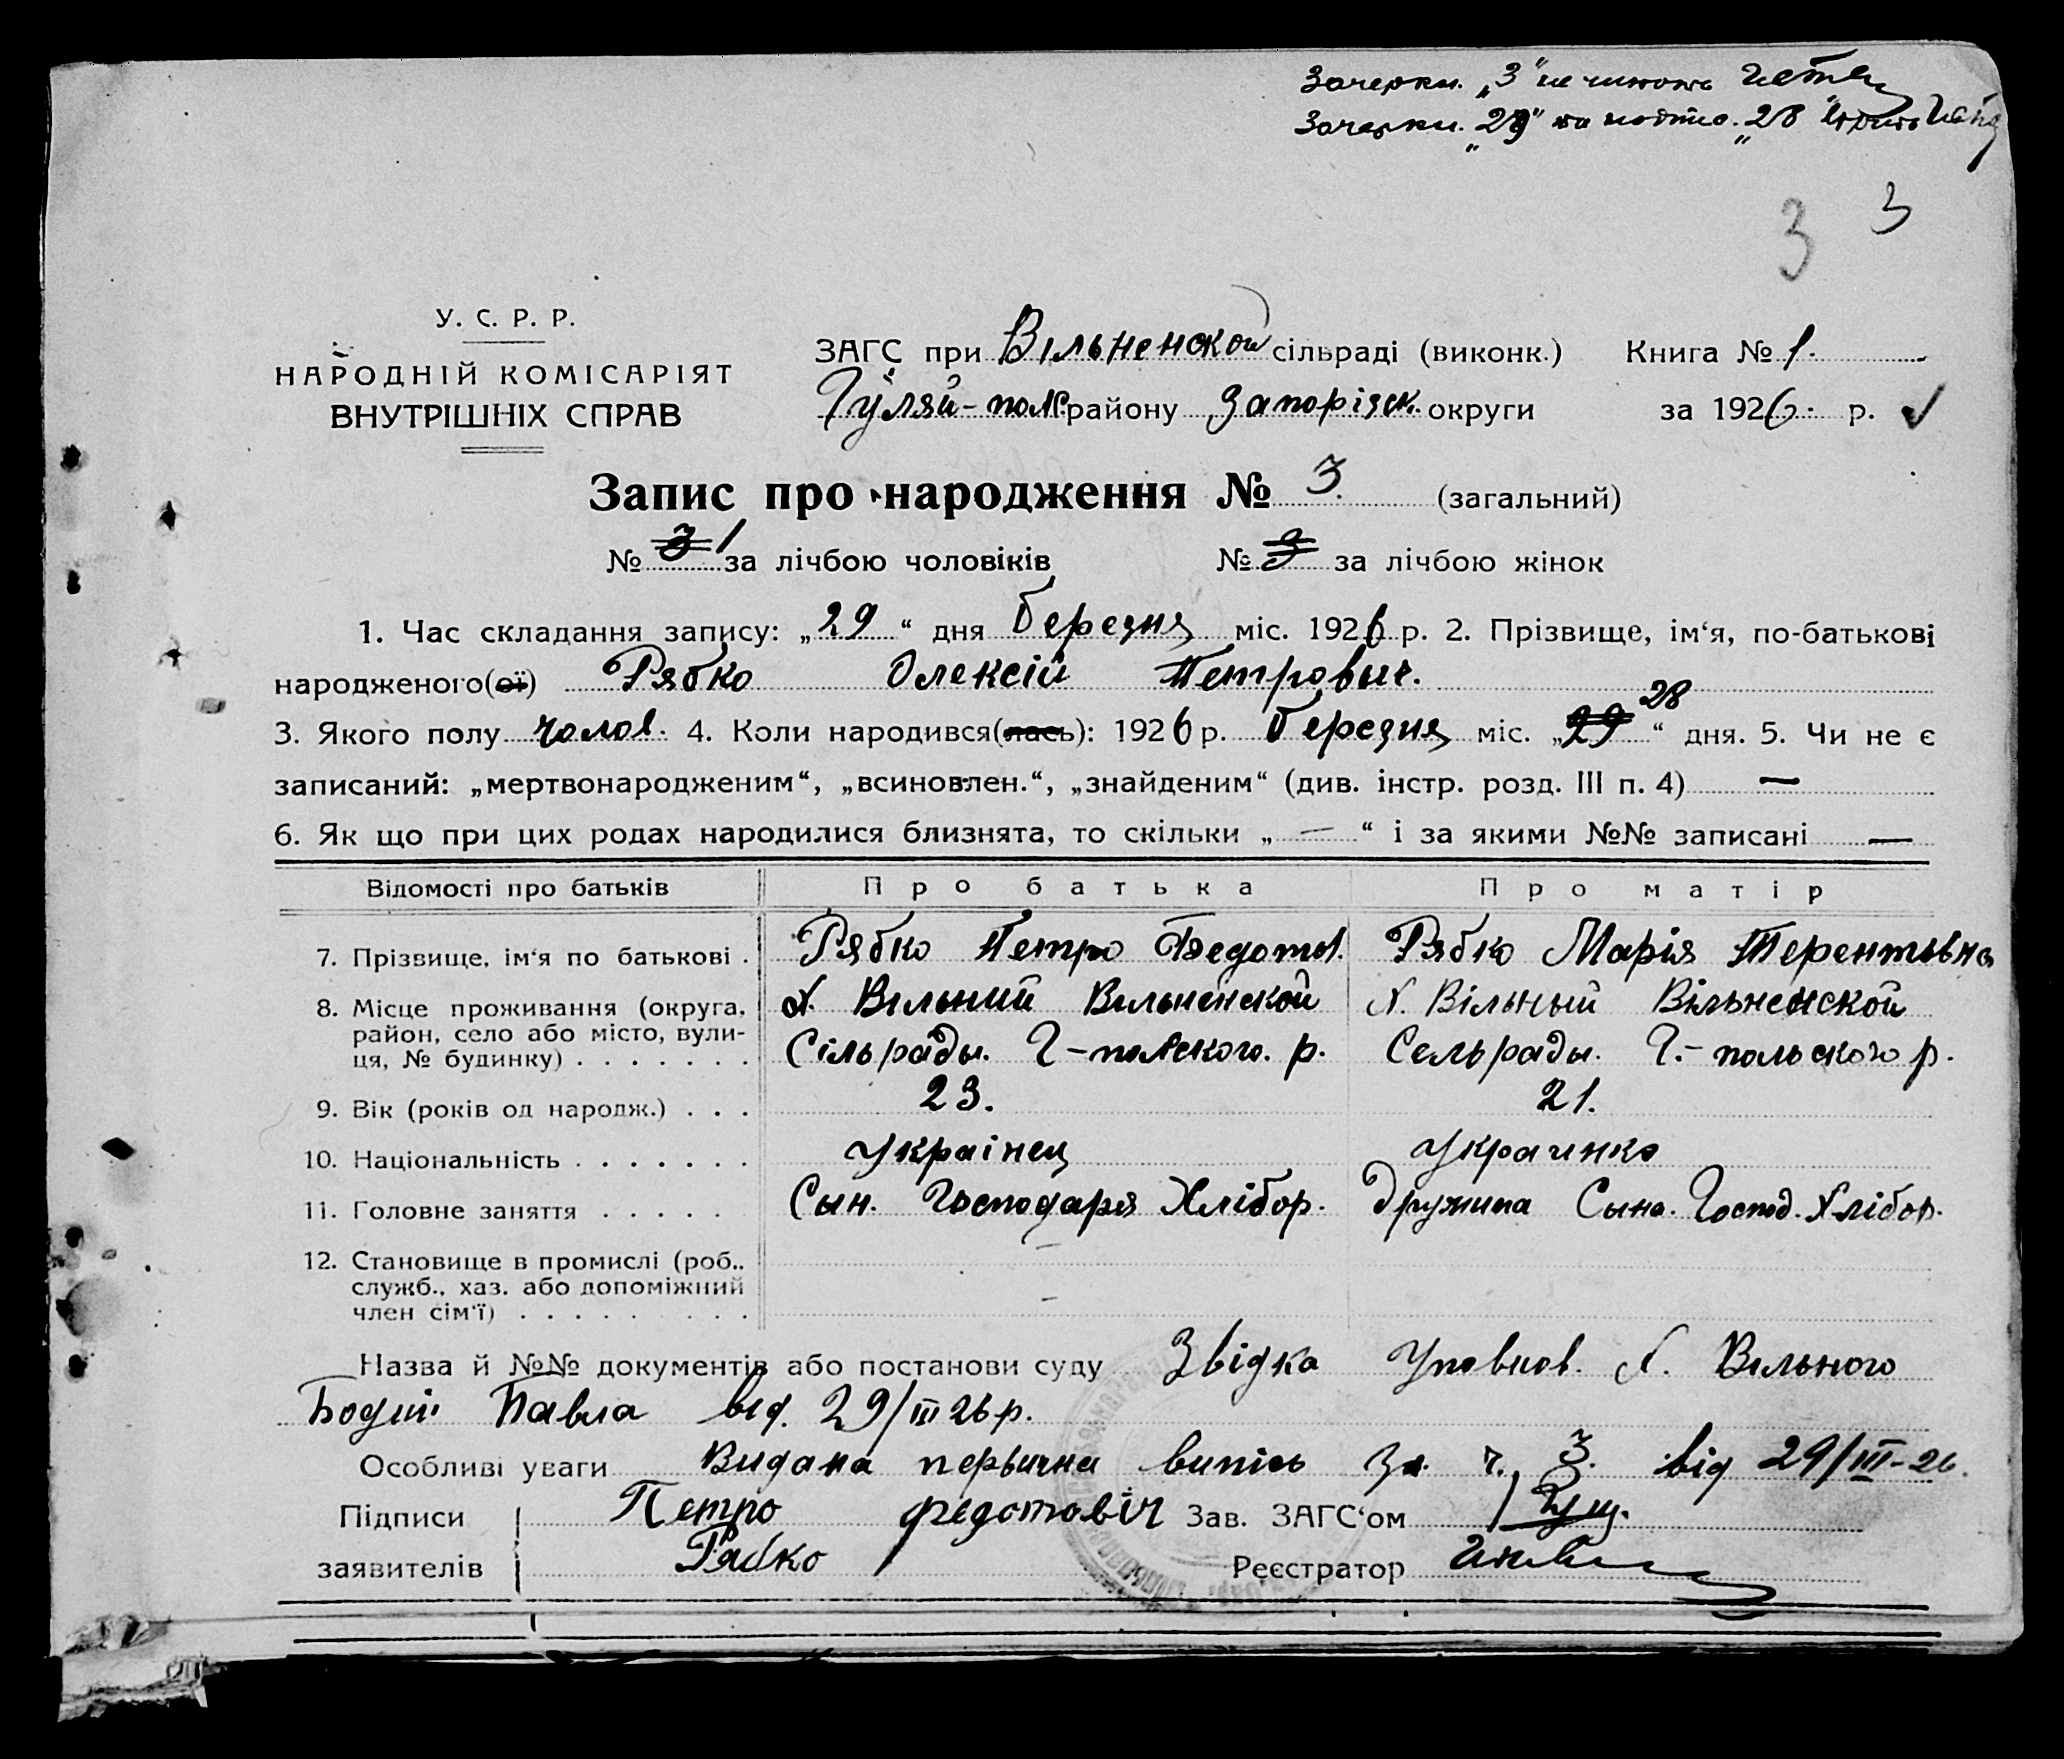 Зачеркн. „3" не читать
Зачеркн. „29" на подпис. „28"
3 3
У. С. Р. Р.
НАРОДНІЙ КОМІСАРІЯТ
ВНУТРІШНІХ СПРАВ
ЗАГС при Вільненской сільраді (виконк.) Книга № 1.
Гуляй-полс. району Запорізск. округи за 1926 р.
Запис про народження № 3. (загальний)
№ 3 1 за лічбою чоловіків № 3 за лічбою жінок
1. Час складання запису: „29“ дня Березня міс. 1926 р. 2. Прізвище, ім‘я, по-батькові
народженого(ої) Рябко Олексій Петровыч.
3. Якого полу чолов. 4. Коли народився(лась): 1926 р. Березня міс. „29“ 28 дня. 5. Чи не є
записаний: „мертвонародженим“, „всиновлен.“, „знайденим“ (див. інстр. розд. III п. 4) —
6. Як що при цих родах народилися близнята, то скільки „ — “ і за якими №№ записані —
Відомості про батьків Про батька Про матір
7. Прізвище, ім‘я по батькові . Рябко Петро Федотов. Рябко Марія Терентьевна
8. Місце проживання (округа, х. Вільний Вильненской х. Вільный Вільненской
район, село або місто, вули-
ця, № будинку) . . . . . . . Сільрады. Г-польского. р. Сельрады. Г.-польского р.
9. Вік (років од народж.) . . . 23. 21.
10. Національність . . . . . . . Украінец Украинка
11. Головне заняття . . . . . Сын. Господаря Хлібор. Дружина Сына. Господ. Хлібор.
12. Становище в промислі (роб..
служб., хаз. або допоміжний
член сім‘ї) . . . . . . . . . —
Назва й №№ документів або постанови суду Звідка Уповнов. х. Вільного
Бодні Павла від. 29/III 26 р.
Особливі уваги Видана первична випісь За. ч. 3. від 29/III-26.
Підписи Петро федотовіч Зав. ЗАГС‘ом
заявителів Рабко Реєстратор